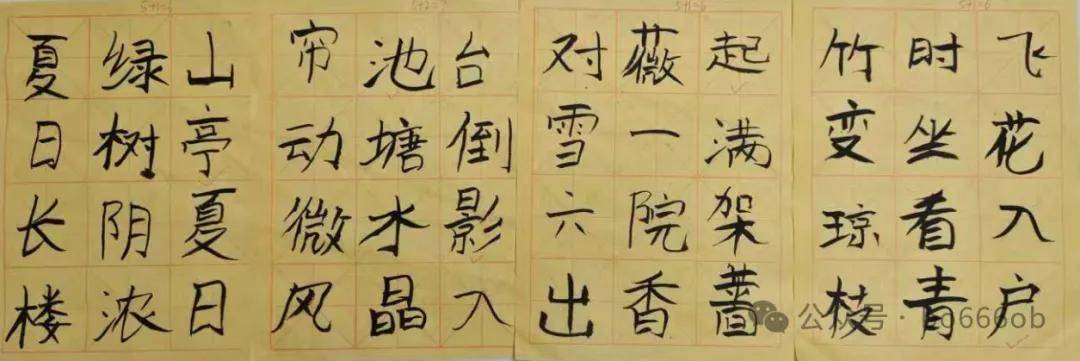 5+1=6
山亭夏日
绿树阴浓
夏日长楼
5+2=7
台倒影入
池塘水晶
帘动微风
5+1=6
起满架蔷
薇一院香
对雪六出
5+1=6
飞花入户
时坐看青
竹变琼枝
公众号